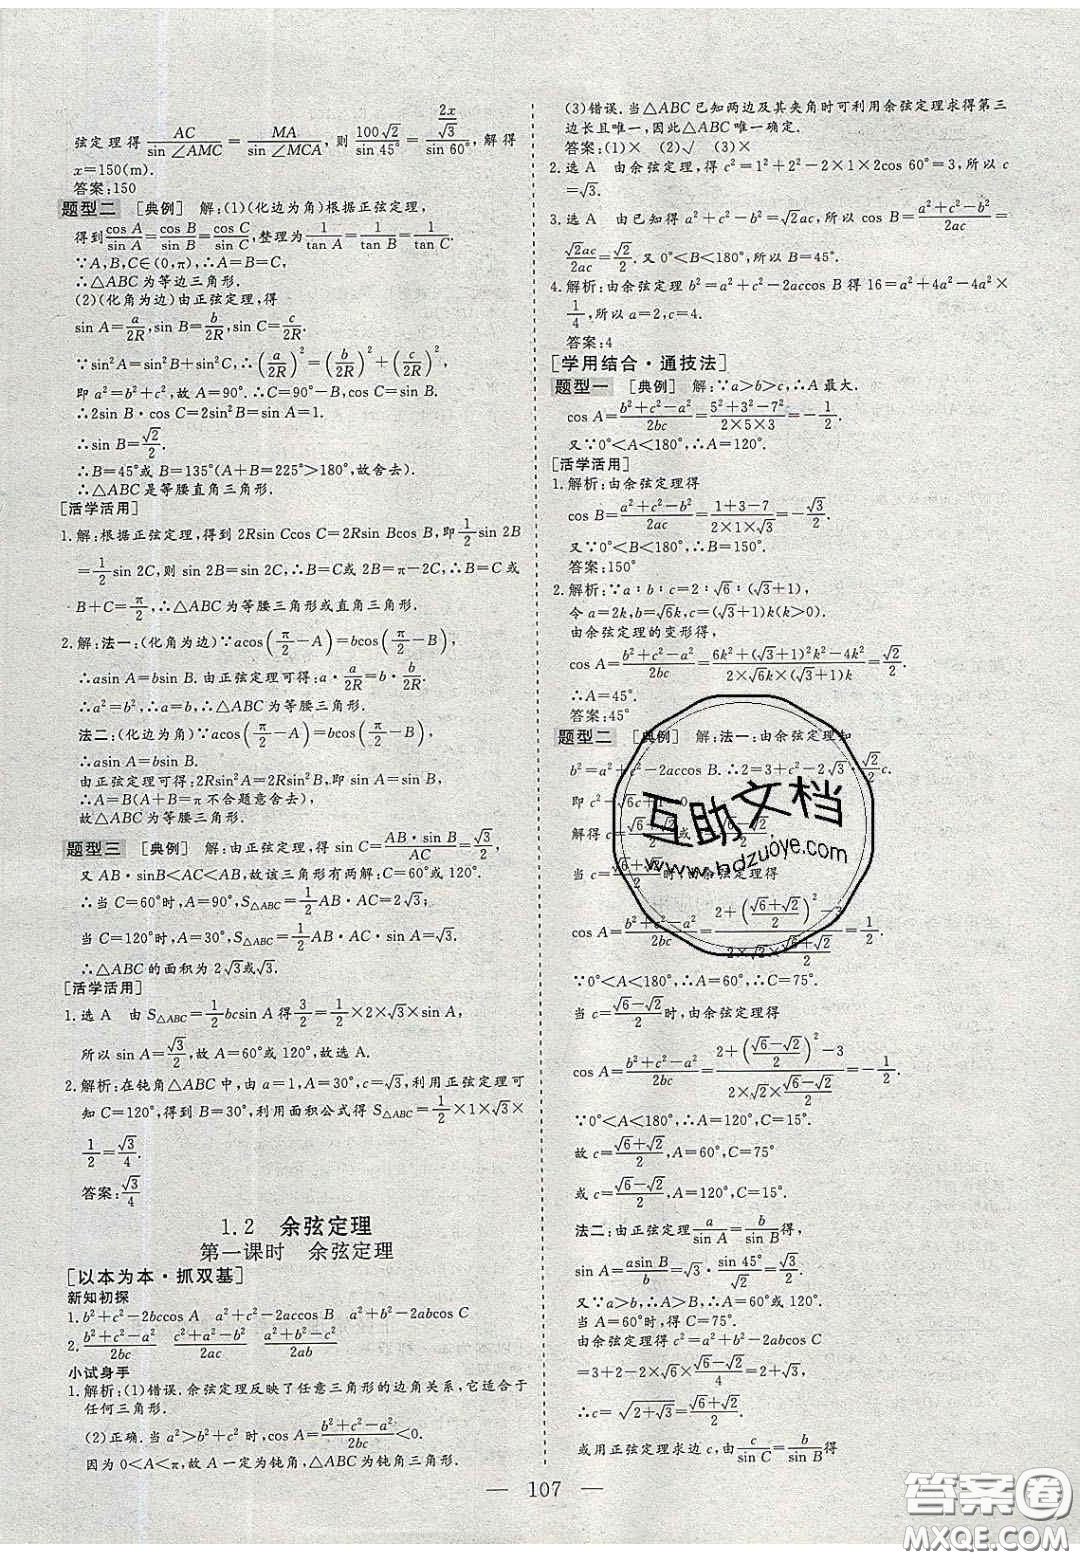 弦定理得 AC/sin∠AMC=MA/sin∠MCA,则 100√2/sin 45°=(2x/√3)/sin 60°,解得
x=150(m).
答案:150
题型二 [典例] 解:(1)(化边为角)根据正弦定理,
得到cos A/sin A=cos B/sin B=cos C/sin C,整理为1/tan A=1/tan B=1/tan C.
∵A,B,C∈(0,π),∴A=B=C.
∴△ABC为等边三角形.
(2)(化角为边)由正弦定理,得
sin A=a/2R,sin B=b/2R,sin C=c/2R.
∵sin²A=sin²B+sin²C,∴(a/2R)²=(b/2R)²+(c/2R)²,
即a²=b²+c²,故A=90°.∴C=90°−B,cos C=sin B.
∴2sin B·cos C=2sin²B=sin A=1.
∴sin B=√2/2.
∴B=45°或B=135°(A+B=225°>180°,故舍去).
∴△ABC是等腰直角三角形.
[活学活用]
1.解:根据正弦定理,得到2Rsin Ccos C=2Rsin Bcos B,即1/2sin 2B
=1/2sin 2C,所以sin 2B=sin 2C,∴B=C或2B=π−2C,即B=C或
B+C=π/2,∴△ABC为等腰三角形或直角三角形.
2.解:法一:(化角为边)∵acos(π/2−A)=bcos(π/2−B),
∴asin A=bsin B.由正弦定理可得:a·a/2R=b·b/2R,
∴a²=b²,∴a=b,∴△ABC为等腰三角形.
法二:(化边为角)∵acos(π/2−A)=bcos(π/2−B),
∴asin A=bsin B.
由正弦定理可得:2Rsin²A=2Rsin²B,即sin A=sin B,
∴A=B(A+B=π不合题意舍去).
故△ABC为等腰三角形.
题型三 [典例] 解:由正弦定理,得sin C=AB·sin B/AC=√3/2,
又AB·sinB<AC<AB,故该三角形有两解:C=60°或120°.
∴当C=60°时,A=90°,S△ABC=1/2AB·AC=2√3;
当C=120°时,A=30°,S△ABC=1/2AB·AC·sin A=√3.
∴△ABC的面积为2√3或√3.
[活学活用]
1.选A 由S△ABC=1/2bcsin A得3/2=1/2×2×√3×sin A,
所以sin A=√3/2,故A=60°或120°,故选A.
2.解析:在钝角△ABC中,由a=1,A=30°,c=√3,利用正弦定理可
知C=120°,得到B=30°,利用面积公式得S△ABC=1/2×1×√3×
1/2=√3/4.
答案:√3/4
1.2 余弦定理
第一课时 余弦定理
[以本为本·抓双基]
新知初探
1.b²+c²−2bccos A a²+c²−2accos B a²+b²−2abcos C
2.(b²+c²−a²)/2bc (c²+a²−b²)/2ac (a²+b²−c²)/2ab
小试身手
1.解析:(1)错误.余弦定理反映了任意三角形的边角关系,它适合于
任何三角形.
(2)正确.当a²>b²+c²时,cos A=(b²+c²−a²)/2bc<0.
因为0<A<π,故A一定为钝角,△ABC为钝角三角形.
(3)错误.当△ABC已知两边及其夹角时可利用余弦定理求得第三
边长且唯一,因此△ABC唯一确定.
答案:(1)× (2)√ (3)×
2.选A 由余弦定理,得c²=1²+2²−2×1×2cos 60°=3,所以
c=√3.
3.选A 由已知得a²+c²−b²=√2ac,所以cos B=(a²+c²−b²)/2ac=
√2ac/2ac=√2/2.又0°<B<180°,所以B=45°.
4.解析:由余弦定理b²=a²+c²−2accos B得16=a²+4a²−4a²×
1/4,所以a=2,c=4.
答案:4
[学用结合·通技法]
题型一 [典例] 解:∵a>b>c,∴A最大.
cos A=(b²+c²−a²)/2bc=(5²+3²−7²)/(2×5×3)=−1/2.
又∵0°<A<180°,∴A=120°.
[活学活用]
1.解析:由余弦定理得
cos B=(a²+c²−b²)/2ac=(1+3−7)/(2×1×√3)=−√3/2.
又∵0°<B<180°,∴B=150°.
答案:150°
2.解析:∵a∶b∶c=2∶√6∶(√3+1),
令a=2k,b=√6k,c=(√3+1)k(k>0).
由余弦定理的变形得,
cos A=(b²+c²−a²)/2bc=(6k²+(√3+1)²k²−4k²)/(2×√6k×(√3+1)k)=√2/2.
∴A=45°.
答案:45°
题型二 [典例] 解:法一:由余弦定理知
b²=a²+c²−2accos B.∴2=3+c²−2√3·√2/2c.
即c²−√6c+1=0.
解得c=(√6+√2)/2或c=(√6−√2)/2.
当c=(√6+√2)/2时,由余弦定理得
cos A=(b²+c²−a²)/2bc=(2+((√6+√2)/2)²−3)/(2×√2×(√6+√2)/2)=1/2.
∵0°<A<180°,∴A=60°,∴C=75°.
当c=(√6−√2)/2时,由余弦定理得
cos A=(b²+c²−a²)/2bc=(2+((√6−√2)/2)²−3)/(2×√2×(√6−√2)/2)=−1/2.
∵0°<A<180°,∴A=120°,C=15°.
故c=(√6+√2)/2,A=60°,C=75°
或c=(√6−√2)/2,A=120°,C=15°.
法二:由正弦定理a/sin A=b/sin B得,
sin A=asin B/b=√3·sin 45°/√2=√3/2.
又∵a>b,∴A>B,∴A=60°或120°.
当A=60°时,得C=75°.
由余弦定理得c²=a²+b²−2abcos C
=3+2−2×√6×(√6−√2)/4=2+√3,
∴c=√(2+√3)=(√6+√2)/2.
或用正弦定理求边c,由c/sin C=b/sin B得
— 107 —
互助文档
www.hdzuoye.com
答案圈
MXQE.COM